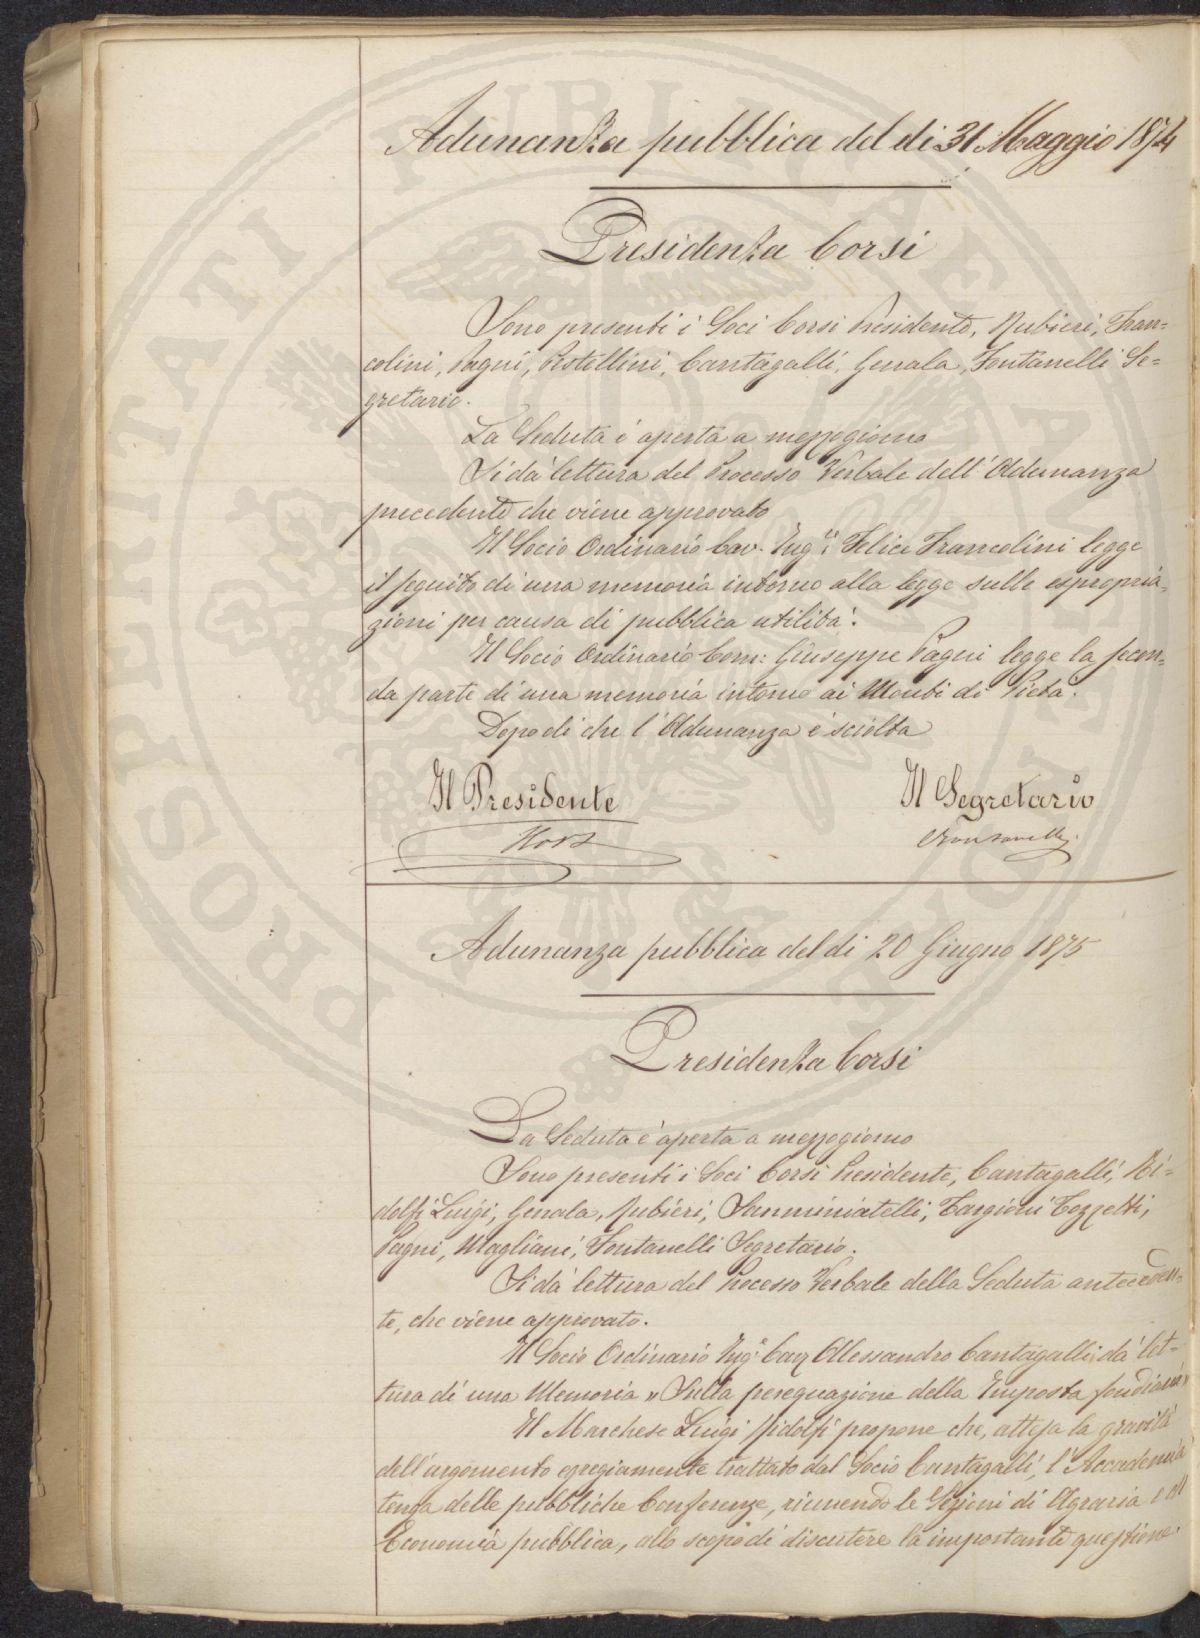 Adunanza pubblica del di 31 Maggio 1874
Presidenza Corsi
Sono presenti i Soci Corsi Presidente, Rubieri, Fran=
colini, Pagni, Pestellini, Cantagalli, Genala, Fontanelli Se=
gretario.
La Seduta è aperta a mezzogiorno
Si dà lettura del Processo Verbale dell'Adunanza
precedente che viene approvato
Il Socio Ordinario Cav. Ing: Felice Francolini legge
il seguito di una memoria intorno alla legge sulle espropria=
zioni per causa di pubblica utilità.
Il Socio Ordinario Com: Giuseppe Pagni legge la secon=
da parte di una memoria intorno ai Monti di Pietà.
Dopo di che l'Adunanza è sciolta
Il Presidente Il Segretario
Fontanelli
Adunanza pubblica del di 20 Giugno 1875
Presidenza Corsi
La Seduta è aperta a mezzogiorno
Sono presenti i Soci Corsi Presidente, Cantagalli, Ri=
dolfi Luigi, Genala, Rubieri, Samminiatelli, Targioni Tozzetti,
Pagni, Magliani, Fontanelli Segretario.
Si dà lettura del Processo Verbale della Seduta anteceden=
te, che viene approvato.
Il Socio Ordinario Ing: Cav Alessandro Cantagalli dà let=
tura di una Memoria "Sulla perequazione della Imposta fondiaria"
Il Marchese Luigi Ridolfi propone che, attesa la gravità
dell'argomento egregiamente trattato dal Socio Cantagalli, l'Accademia
tenga delle pubbliche Conferenze, riunendo le Sezioni di Agraria e di
Economia pubblica, allo scopo di discutere la importante questione.
PROSPERITATI PUBLICAE AUGENDAE